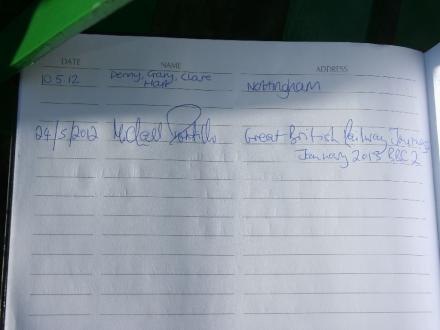 DATE NAME ADDRESS
10.5.12 Penny, Gary, Clare Nottingham
Hart
24/5/2012 Michael Portillo Great British Railway Journeys
January 2013 BBC 2